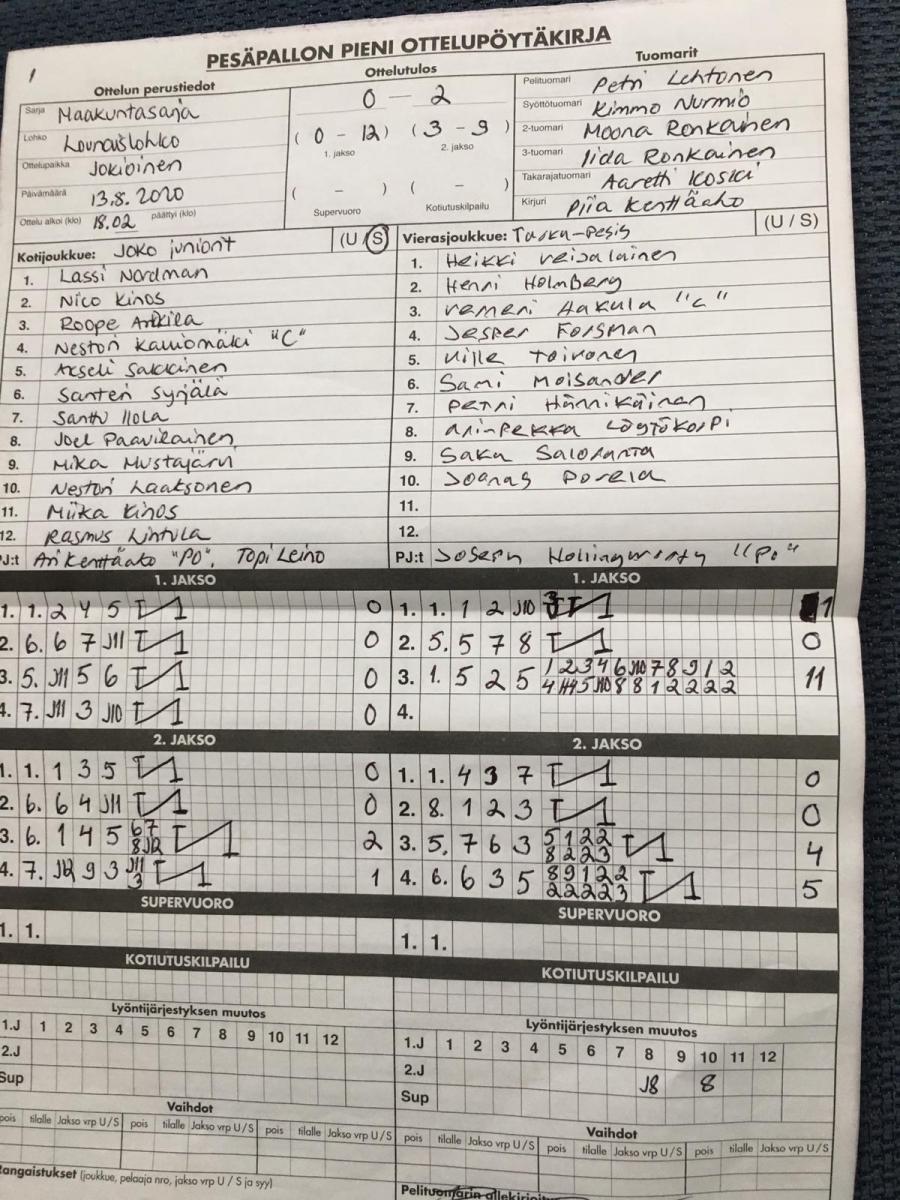 PESÄPALLON PIENI OTTELUPÖYTÄKIRJA
Ottelun perustiedot
Sarja Maakuntasarja
Lohko Lounaislohko
Ottelupaikka Jokioinen
Päivämäärä 13.8.2020
Ottelu alkoi (klo) 18.02 päättyi (klo)
Ottelutulos
0 – 2
( 0 – 12 ) ( 3 – 9 )
1. jakso 2. jakso
( – ) ( – )
Supervuoro Kotiutuskilpailu
Tuomarit
Pelituomari Petri Lehtonen
Syöttötuomari Kimmo Nurmio
2-tuomari Moona Ronkainen
3-tuomari Iida Ronkainen
Takarajatuomari Aaretti Koski
Kirjuri Piia Kenttäaho
Kotijoukkue: Joko juniorit (U / S)
1. Lassi Nordman
2. Nico Kinos
3. Roope Arkkila
4. Nestori Kauiomäki "C"
5. Akseli Sakkinen
6. Santeri Syrjälä
7. Santtu Ilola
8. Joel Paavilainen
9. Mika Mustajärvi
10. Nestori Laaksonen
11. Miika Kinos
12. Rasmus Lintula
PJ:t Ari Kenttäaho "PO", Topi Leino
Vierasjoukkue: Tasku-Pesis (U / S)
1. Heikki Veijalainen
2. Henri Holmberg
3. Verneri Hakula "C"
4. Jesper Forsman
5. Ville Toivonen
6. Sami Moisander
7. Petri Hännikäinen
8. Löytökorpi
9. Saku Saloranta
10. Joonas Porela
11.
12.
PJ:t Joseph "PO"
1. JAKSO
1. 1. 2 4 5 0
2. 6. 6 7 J11 0
3. 5. J11 5 6 0
4. 7. J11 3 J10 0
1. JAKSO
1. 1. 1 2 J10 1
2. 5. 5 7 8 0
3. 1. 5 2 5 1 2 3 4 6 J10 7 8 9 1 2 11
4.
2. JAKSO
1. 1. 1 3 5 0
2. 6. 6 4 J11 0
3. 6. 1 4 5 6 7 2
8 J12
4. 7. J12 9 3 J11 1
3
2. JAKSO
1. 1. 4 3 7 0
2. 8. 1 2 3 0
3. 5. 7 6 3 5 1 2 2 4
8 2 2 3
4. 6. 6 3 5 8 9 1 2 2 5
2 2 2 2 3
SUPERVUORO
1. 1.
SUPERVUORO
1. 1.
KOTIUTUSKILPAILU
KOTIUTUSKILPAILU
Lyöntijärjestyksen muutos
1.J 1 2 3 4 5 6 7 8 9 10 11 12
2.J
Sup
Lyöntijärjestyksen muutos
1.J 1 2 3 4 5 6 7 8 9 10 11 12
2.J J8 8
Sup
Vaihdot
pois tilalle Jakso vrp U / S pois tilalle Jakso vrp U / S pois tilalle Jakso vrp U / S
Vaihdot
pois tilalle Jakso vrp U / S pois tilalle Jakso vrp U / S pois tilalle Jakso vrp U / S
Rangaistukset (joukkue, pelaaja nro, jakso vrp U / S ja syy)